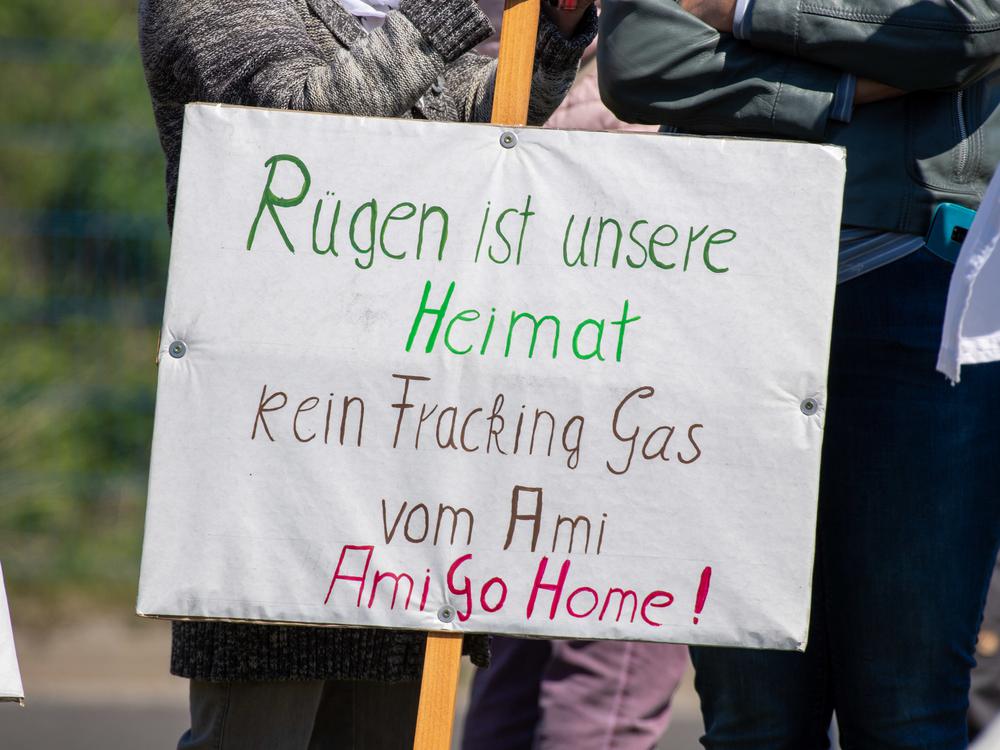 Rügen ist unsere
Heimat
kein Fracking Gas
vom Ami
Ami Go Home!